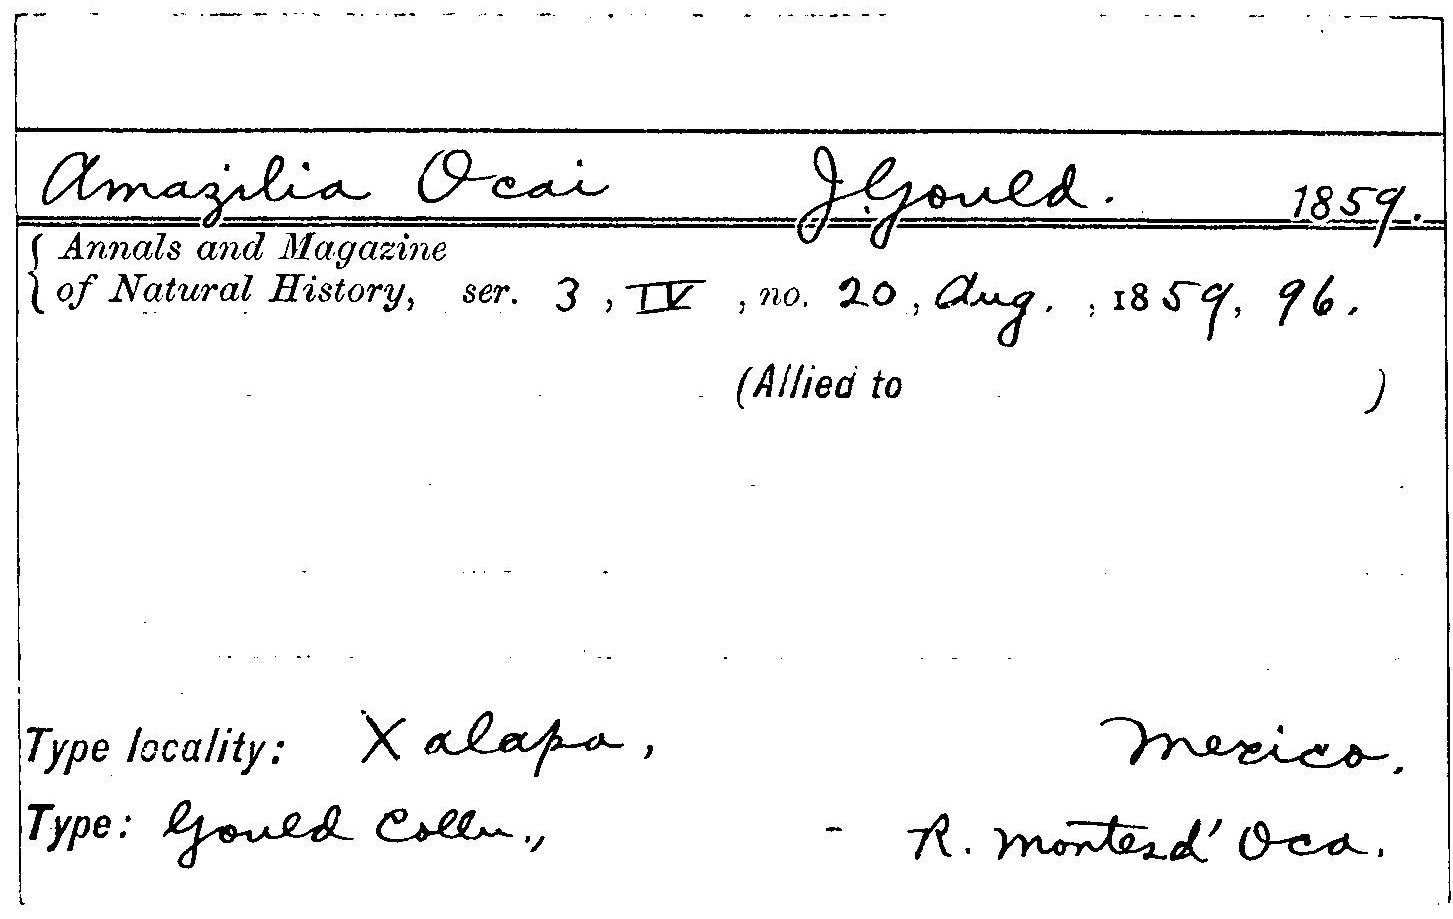 Amazilia Ocai J. Gould. 1859.
{ Annals and Magazine
of Natural History, ser. 3, IV, no. 20, Aug., 1859, 96.
(Allied to )
Type locality: Xalapa, Mexico.
Type: Gould Colln., - R. Montes d'Oca.